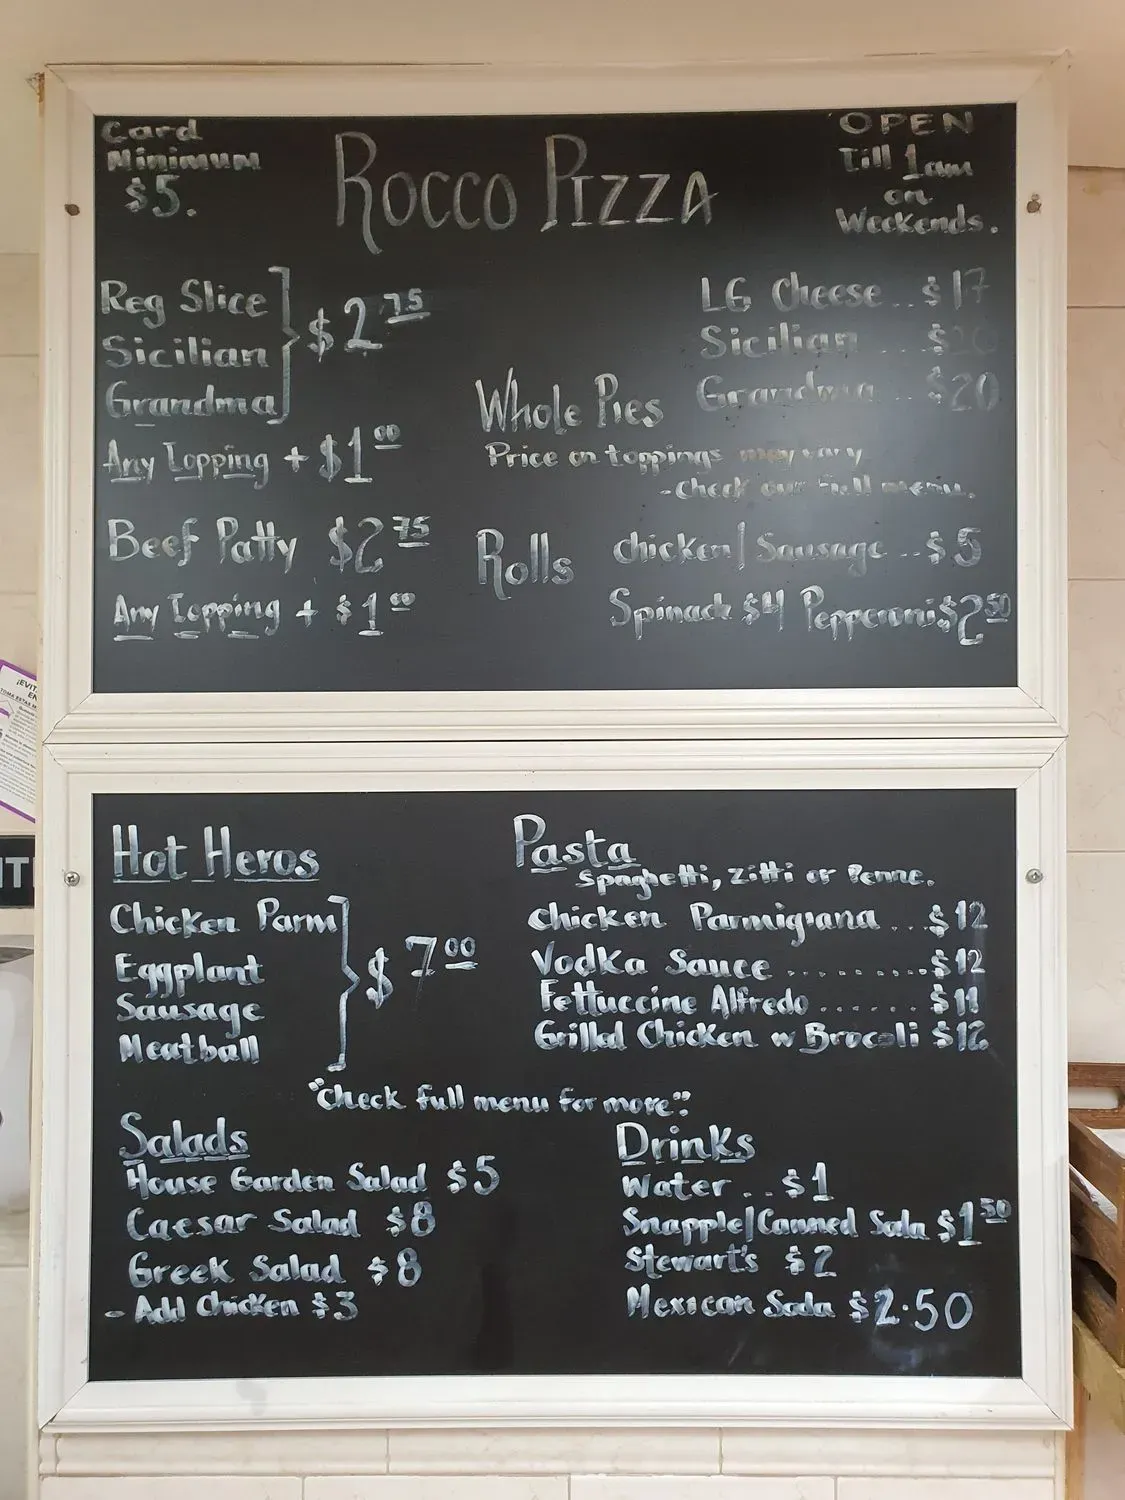 Card
Minimum
$5.
ROCCO PIZZA
OPEN
Till 1am
on
Weekends.
Reg Slice
Sicilian
Grandma
$2.75
Any Topping + $1.00
Beef Patty $2.75
Any Topping + $1.00
LG Cheese .. $17
Sicilian ... $20
Grandma .. $20
Whole Pies
Price on toppings may vary
- Check our full menu.
Rolls
chicken/Sausage .. $5
Spinach $4 Pepperoni $2.50
Hot Heros
Chicken Parm
Eggplant
Sausage
Meatball
$7.00
Pasta
Spaghetti, Zitti or Penne.
Chicken Parmigiana ... $12
Vodka Sauce .......... $12
Fettuccine Alfredo ...... $11
Grilled Chicken w Brocoli $12
"Check full menu for more"
Salads
House Garden Salad $5
Caesar Salad $8
Greek Salad $8
- Add Chicken $3
Drinks
Water .. $1
Snapple/Canned Soda $1.50
Stewart's $2
Mexican Soda $2.50